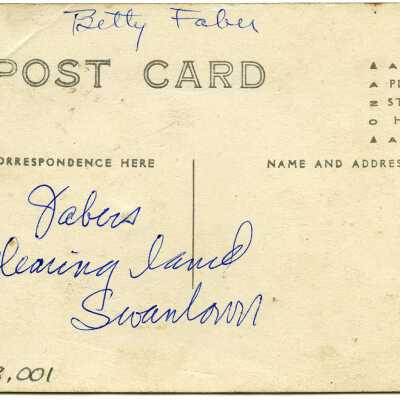 Betty Faber
POST CARD
ORRESPONDENCE HERE
NAME AND ADDRES
Fabers
learing land
Swantown
3,001